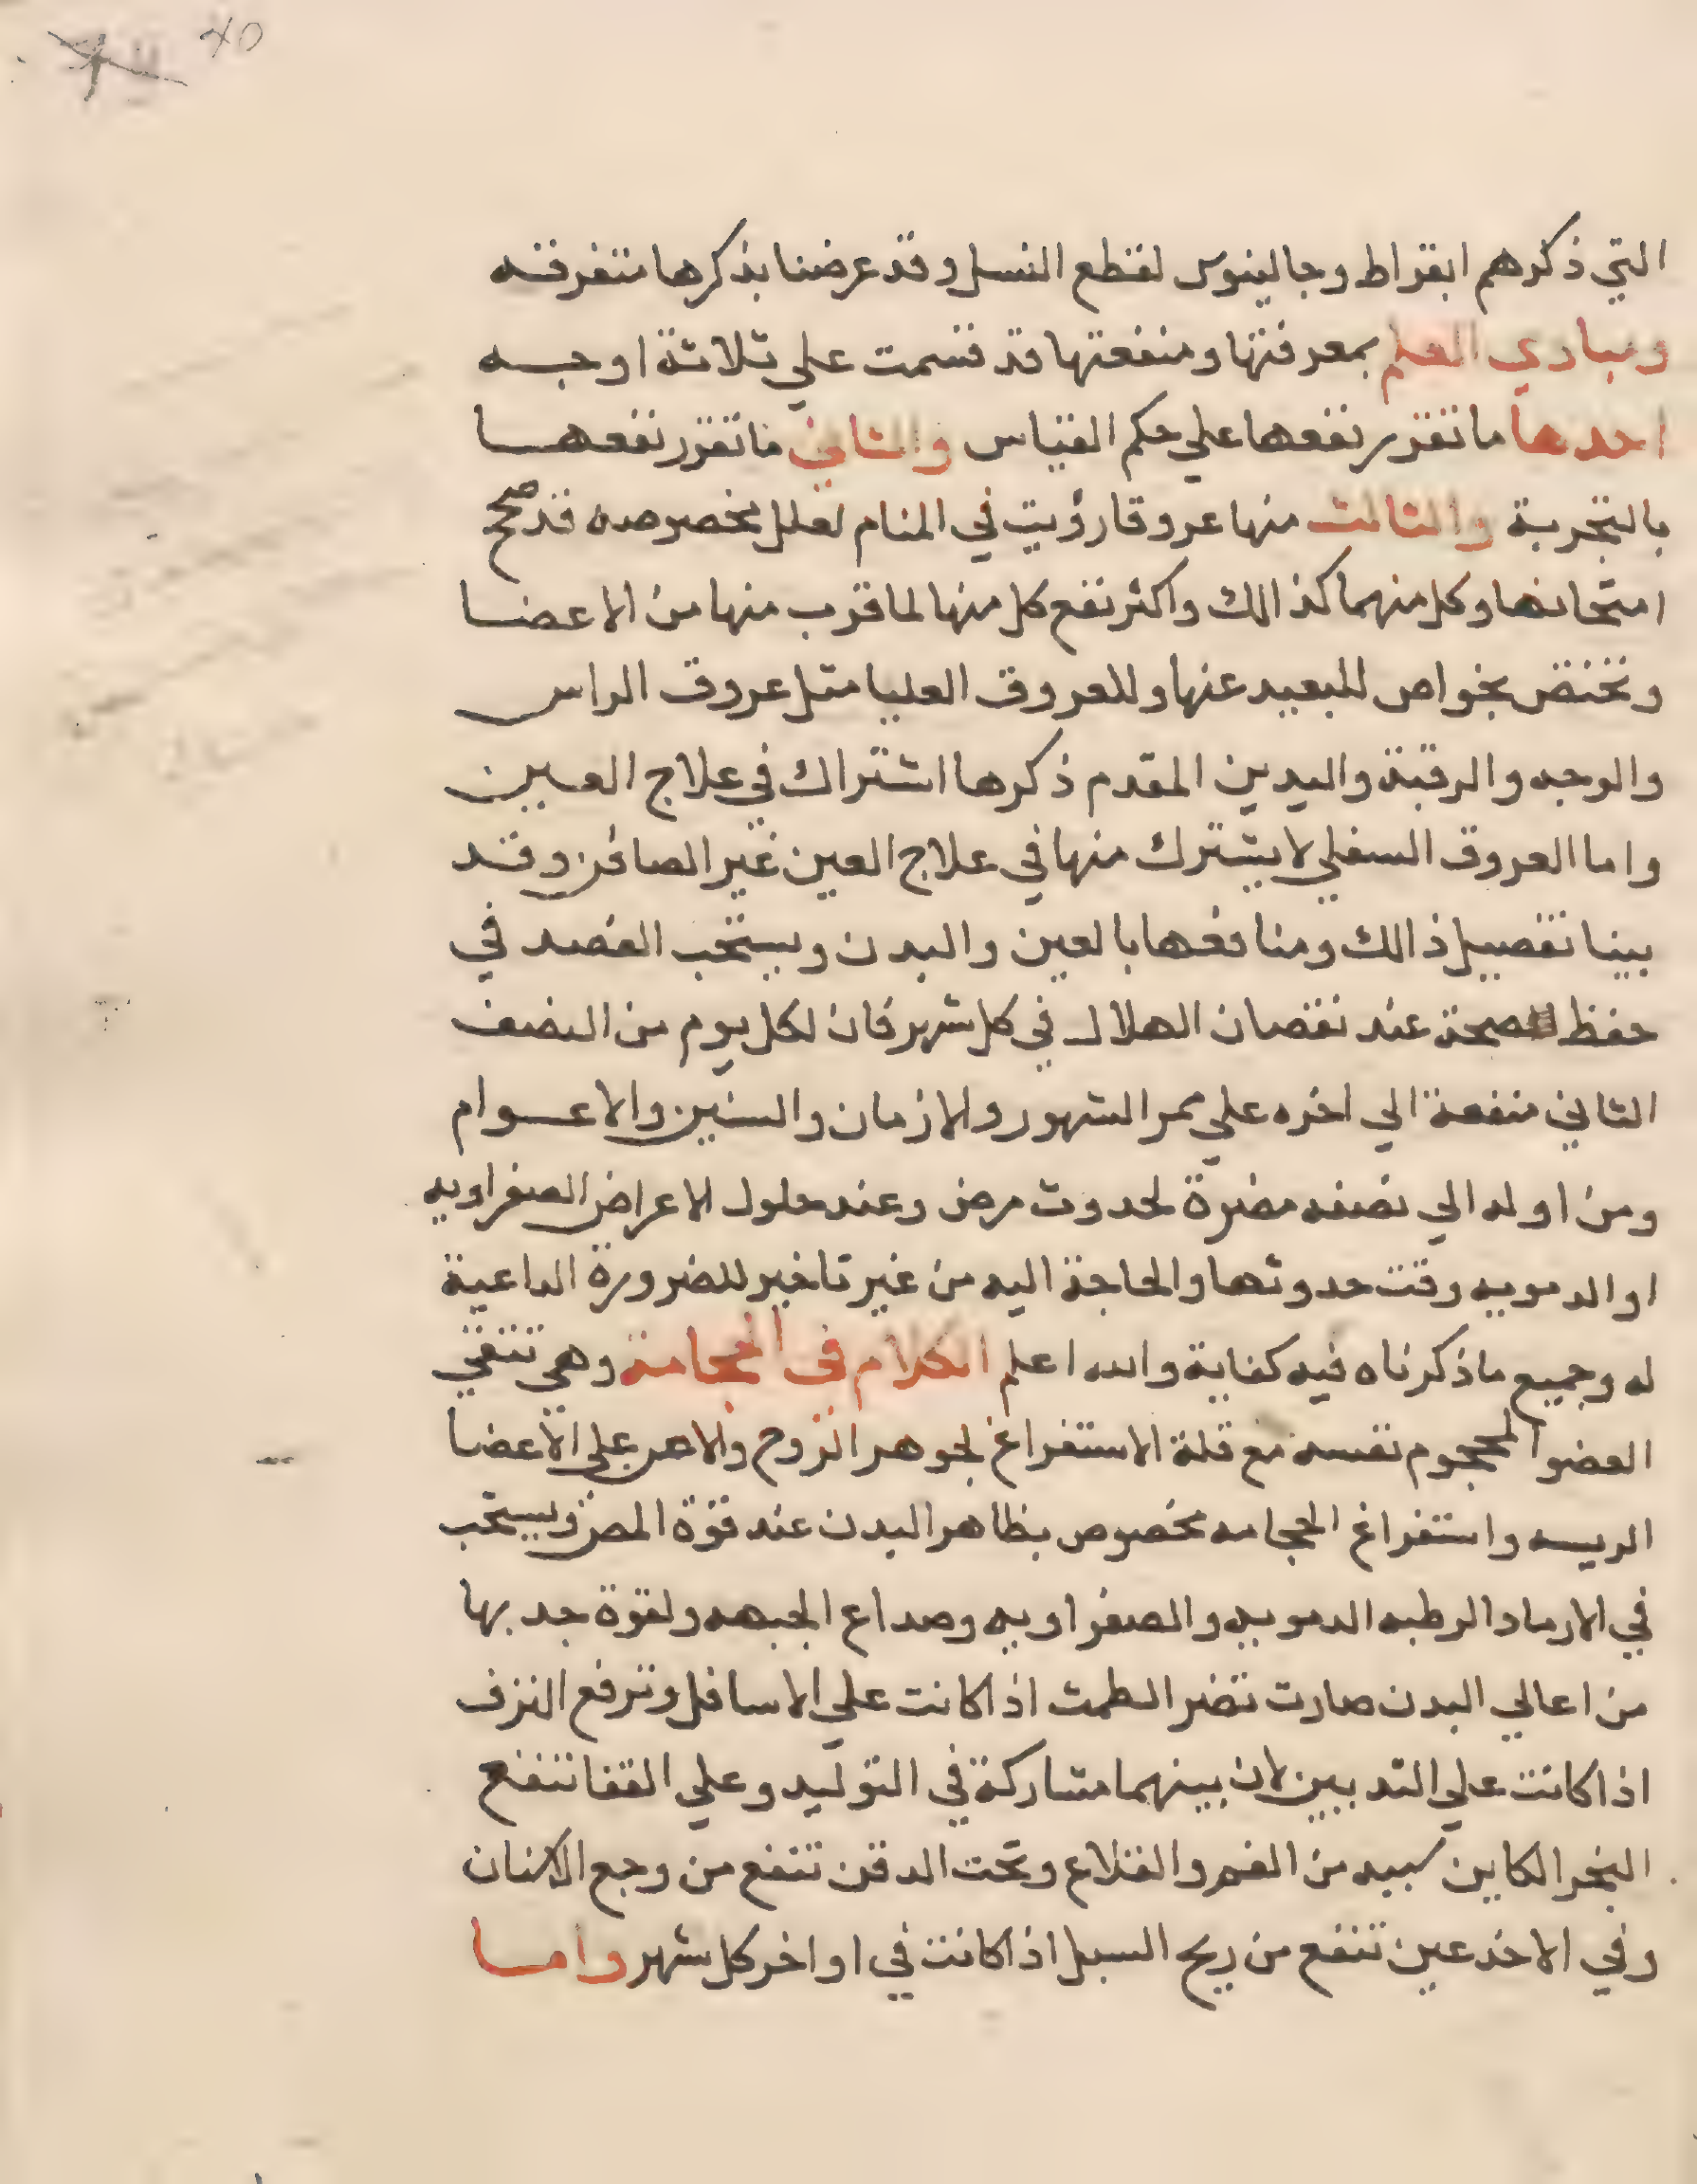 التي ذكرهم ابقراط وجالينوس لقطع النسل وقد عرضنا بذكرها متفرقه
ومبادي العلم بمعرفتها ومنفعتها قد قسمت علي ثلاثة اوجه
احدها ما تقرر نفعها علي حكم القياس والثاني ما تقرر نفعها
بالتجربة والثالث منها عروقا رؤيت في المنام لعلل مخصوصه قد صح
امتحانها وكل منهما كذالك واكثر نفع كل منها لما قرب منها من الاعضا
وتختص بخواص للبعيد عنها وللعروق العليا مثل عروق الراس
والوجه والرقبة واليدين المقدم ذكرها اشتراك في علاج العين
واما العروق السفلي لا يشترك منها في علاج العين غير الصافن وقد
بينا تفصيل ذالك ومنافعها بالعين والبدن ويستحب الفصد في
حفظ الصحة عند نقصان الهلال في كل شهر فان لكل يوم من النصف
الثاني منفعة الي اخره علي ممر الشهور والازمان والسنين والاعوام
ومن اوله الي نصفه مضرة لحدوث مرض وعند حلول الاعراض الصفراويه
او الدمويه وقت حدوثها والحاجة اليه من غير تاخير للضرورة الداعية
له وجميع ما ذكرناه فيه كفاية والله اعلم الكلام في الحجامة وهي تنقي
العضو المحجوم نفسه مع قلة الاستفراغ لجوهر الروح والامن علي الاعضا
الريسه واستفراغ الحجامه مخصوص بظاهر البدن عند قوة المص ويستحب
في الارماد الرطبه الدمويه والصفراويه وصداع الجبهه ولقوة جدبها
من اعالي البدن صارت تضر الطمث اذا كانت علي الاسافل وترفع النزف
اذا كانت علي التديين لان بينهما مشاركة في التوليد وعلي القفا تنفع
البخر الكاين سببه من الفم والقلاع وتحت الدقن تنفع من وجع الاسنان
وفي الاخدعين تنفع من ريح السبل اذا كانت في اواخر كل شهر واما